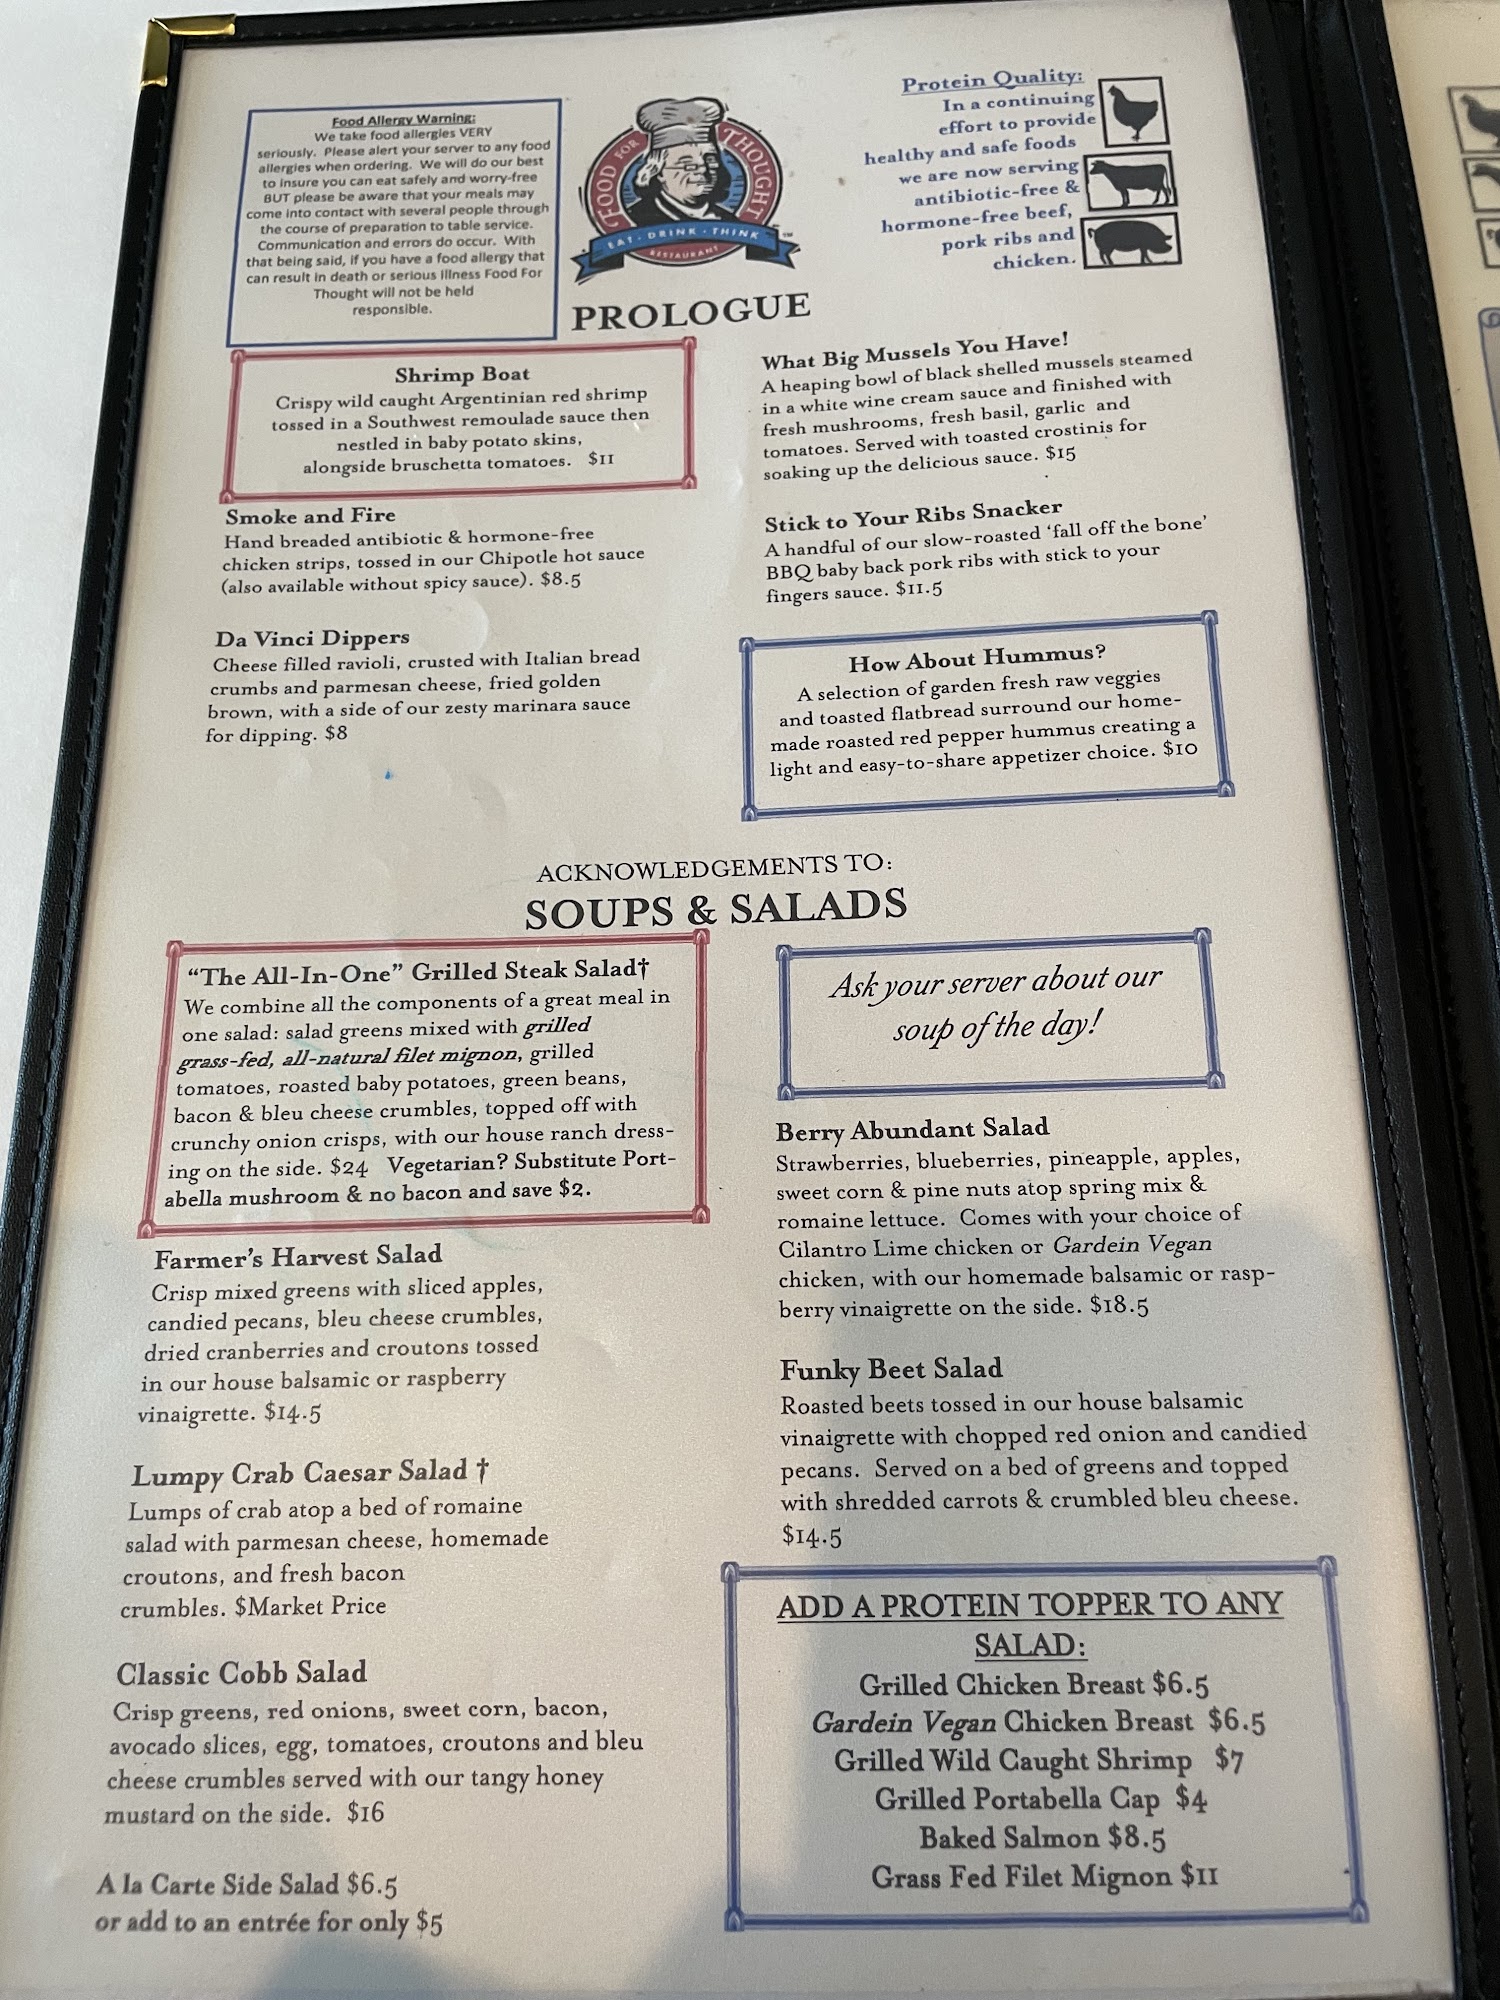 Food Allergy Warning:
We take food allergies VERY
seriously. Please alert your server to any food
allergies when ordering. We will do our best
to insure you can eat safely and worry-free
BUT please be aware that your meals may
come into contact with several people through
the course of preparation to table service.
Communication and errors do occur. With
that being said, if you have a food allergy that
can result in death or serious illness Food For
Thought will not be held
responsible.
FOOD FOR THOUGHT
EAT · DRINK · THINK
RESTAURANT
Protein Quality:
In a continuing
effort to provide
healthy and safe foods
we are now serving
antibiotic-free &
hormone-free beef,
pork ribs and
chicken.
PROLOGUE
Shrimp Boat
Crispy wild caught Argentinian red shrimp
tossed in a Southwest remoulade sauce then
nestled in baby potato skins,
alongside bruschetta tomatoes. $11
Smoke and Fire
Hand breaded antibiotic & hormone-free
chicken strips, tossed in our Chipotle hot sauce
(also available without spicy sauce). $8.5
Da Vinci Dippers
Cheese filled ravioli, crusted with Italian bread
crumbs and parmesan cheese, fried golden
brown, with a side of our zesty marinara sauce
for dipping. $8
What Big Mussels You Have!
A heaping bowl of black shelled mussels steamed
in a white wine cream sauce and finished with
fresh mushrooms, fresh basil, garlic and
tomatoes. Served with toasted crostinis for
soaking up the delicious sauce. $15
Stick to Your Ribs Snacker
A handful of our slow-roasted 'fall off the bone'
BBQ baby back pork ribs with stick to your
fingers sauce. $11.5
How About Hummus?
A selection of garden fresh raw veggies
and toasted flatbread surround our home-
made roasted red pepper hummus creating a
light and easy-to-share appetizer choice. $10
ACKNOWLEDGEMENTS TO:
SOUPS & SALADS
"The All-In-One" Grilled Steak Salad†
We combine all the components of a great meal in
one salad: salad greens mixed with grilled
grass-fed, all-natural filet mignon, grilled
tomatoes, roasted baby potatoes, green beans,
bacon & bleu cheese crumbles, topped off with
crunchy onion crisps, with our house ranch dress-
ing on the side. $24 Vegetarian? Substitute Port-
abella mushroom & no bacon and save $2.
Farmer's Harvest Salad
Crisp mixed greens with sliced apples,
candied pecans, bleu cheese crumbles,
dried cranberries and croutons tossed
in our house balsamic or raspberry
vinaigrette. $14.5
Lumpy Crab Caesar Salad †
Lumps of crab atop a bed of romaine
salad with parmesan cheese, homemade
croutons, and fresh bacon
crumbles. $Market Price
Classic Cobb Salad
Crisp greens, red onions, sweet corn, bacon,
avocado slices, egg, tomatoes, croutons and bleu
cheese crumbles served with our tangy honey
mustard on the side. $16
A la Carte Side Salad $6.5
or add to an entrée for only $5
Ask your server about our
soup of the day!
Berry Abundant Salad
Strawberries, blueberries, pineapple, apples,
sweet corn & pine nuts atop spring mix &
romaine lettuce. Comes with your choice of
Cilantro Lime chicken or Gardein Vegan
chicken, with our homemade balsamic or rasp-
berry vinaigrette on the side. $18.5
Funky Beet Salad
Roasted beets tossed in our house balsamic
vinaigrette with chopped red onion and candied
pecans. Served on a bed of greens and topped
with shredded carrots & crumbled bleu cheese.
$14.5
ADD A PROTEIN TOPPER TO ANY
SALAD:
Grilled Chicken Breast $6.5
Gardein Vegan Chicken Breast $6.5
Grilled Wild Caught Shrimp $7
Grilled Portabella Cap $4
Baked Salmon $8.5
Grass Fed Filet Mignon $11